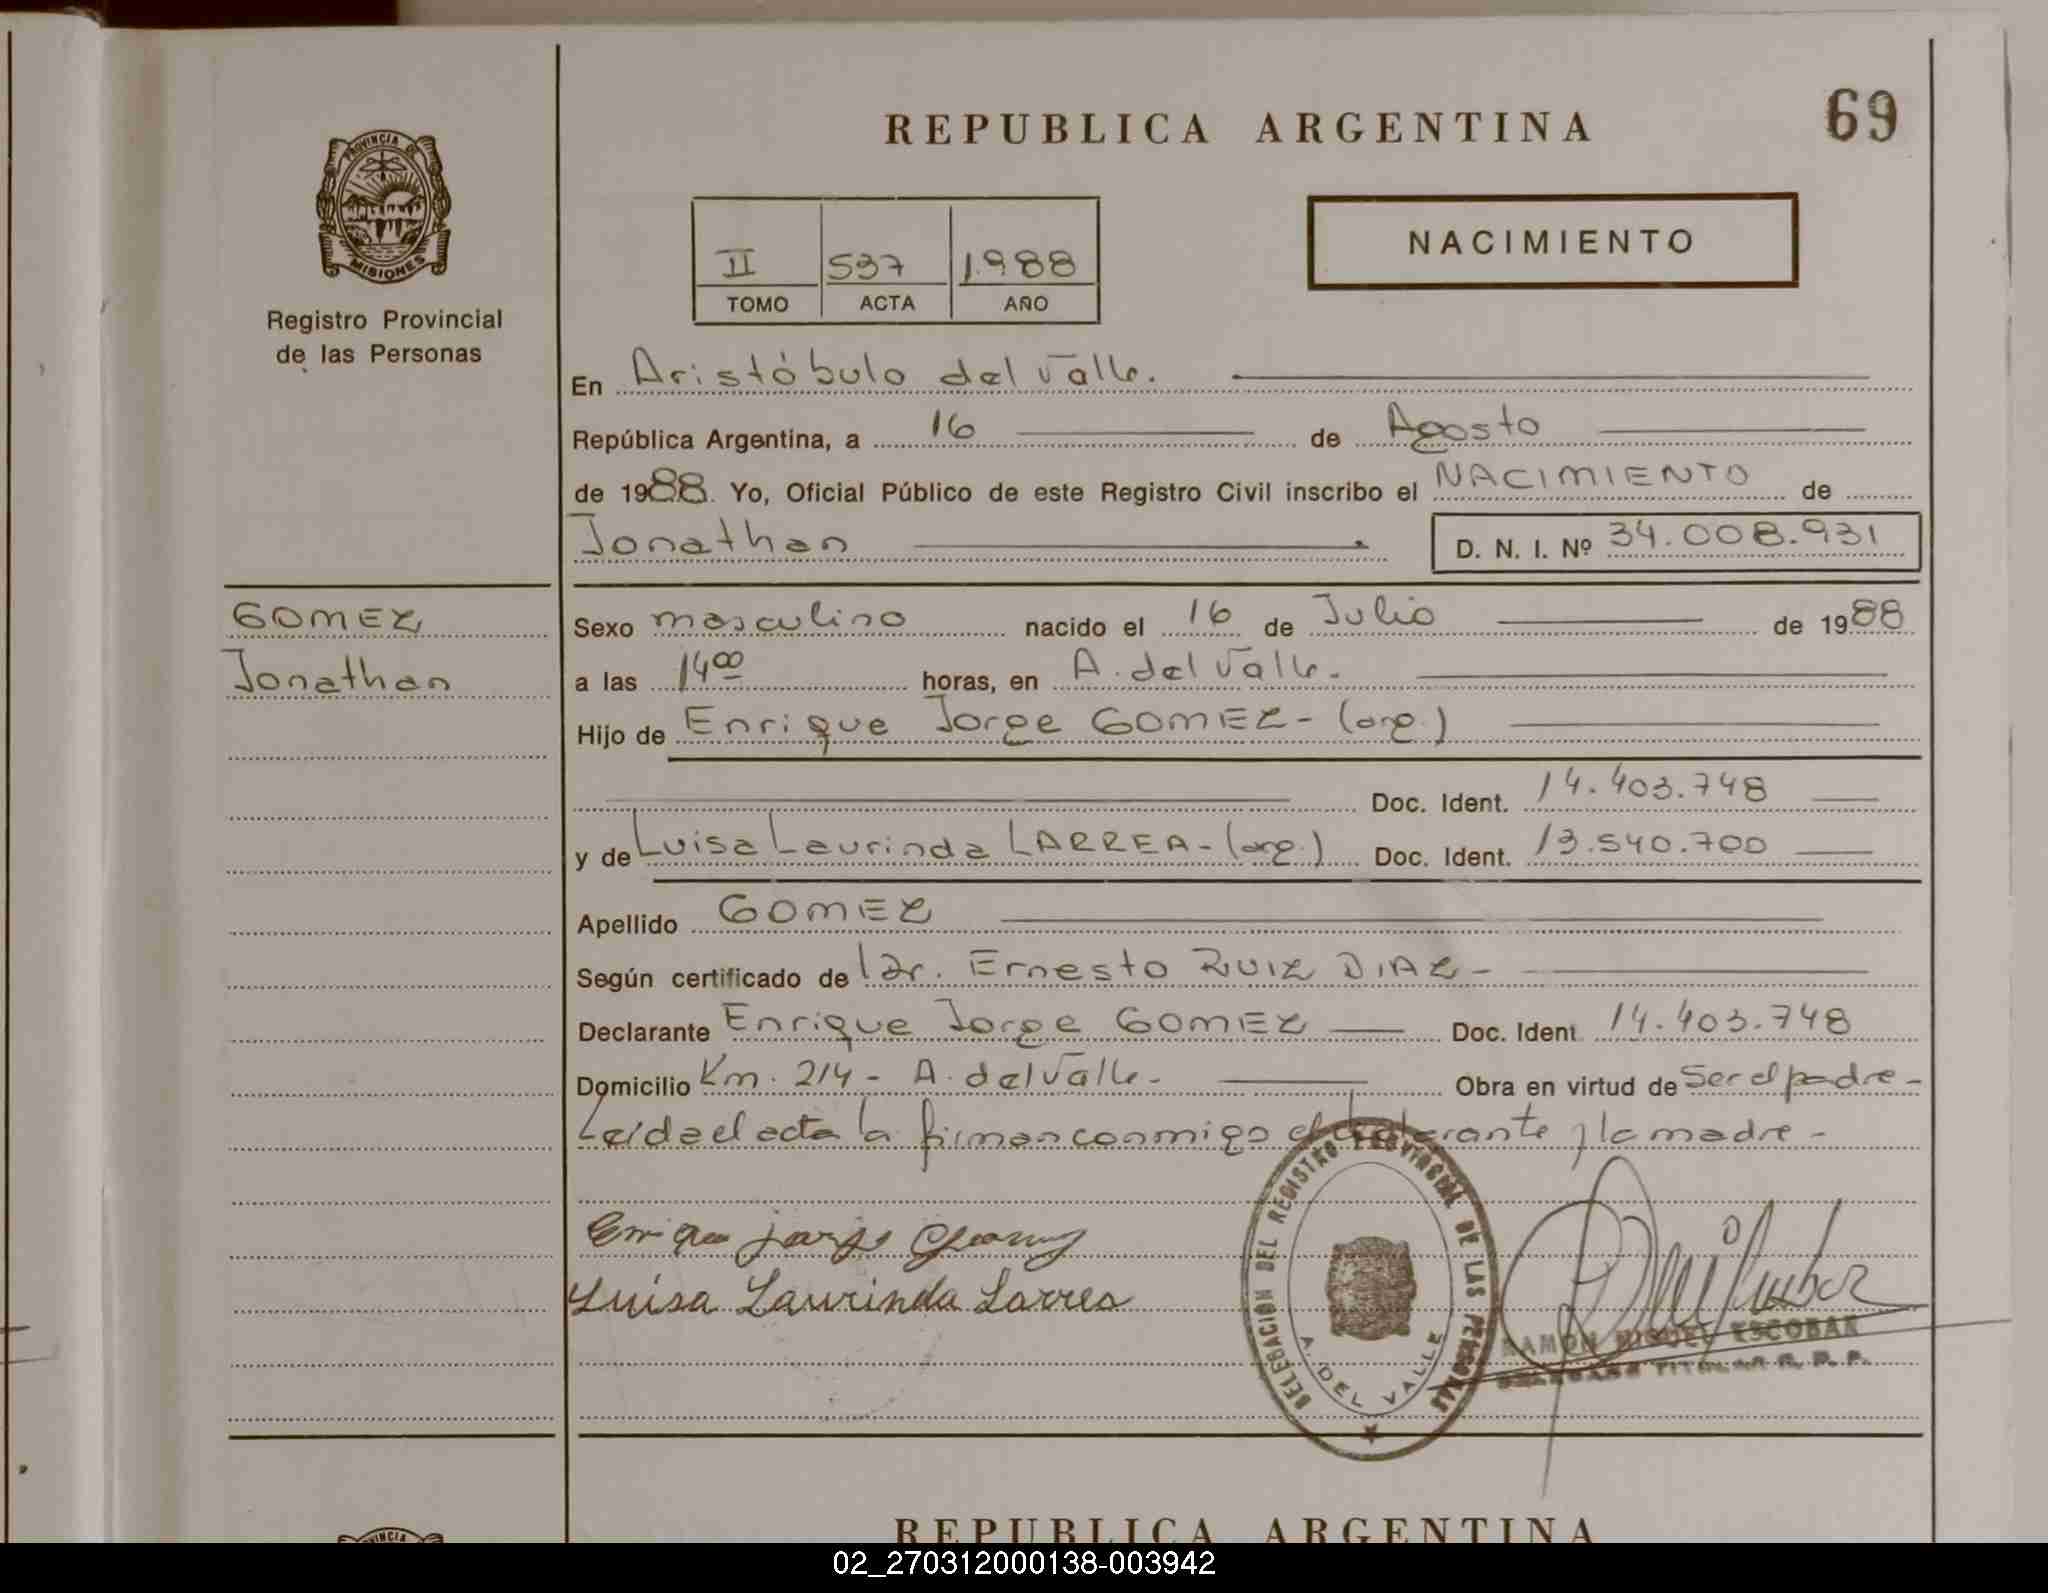 REPUBLICA ARGENTINA
69
PROVINCIA DE
MISIONES
Registro Provincial
de las Personas
II 537 1.988
TOMO ACTA AÑO
NACIMIENTO
En Aristóbulo del Valle.
República Argentina, a 16 de Agosto
de 1988. Yo, Oficial Público de este Registro Civil inscribo el NACIMIENTO de
Jonathan
D. N. I. Nº 34.008.931
GOMEZ
Jonathan
Sexo masculino nacido el 16 de Julio de 1988
a las 14⁰⁰ horas, en A. del Valle.
Hijo de Enrique Jorge GOMEZ - (arg.)
Doc. Ident. 14.403.748
y de Luisa Laurinda LARREA - (arg.) Doc. Ident. 13.540.700
Apellido GOMEZ
Según certificado de Dr. Ernesto RUIZ DIAZ -
Declarante Enrique Jorge GOMEZ Doc. Ident. 14.403.748
Domicilio Km. 214 - A. del Valle - Obra en virtud de Ser el padre -
Leída el acta la firman conmigo el declarante y la madre -
Enrique Jorge
Luisa Laurinda Larrea
DELEGACIÓN DEL REGISTRO PROVINCIAL DE LAS PERSONAS
A. DEL VALLE
RAMON MIGUEL ESCOBAR
DELEGADO TITULAR R. P. P.
PROVINCIA
REPUBLICA ARGENTINA
02_270312000138-003942